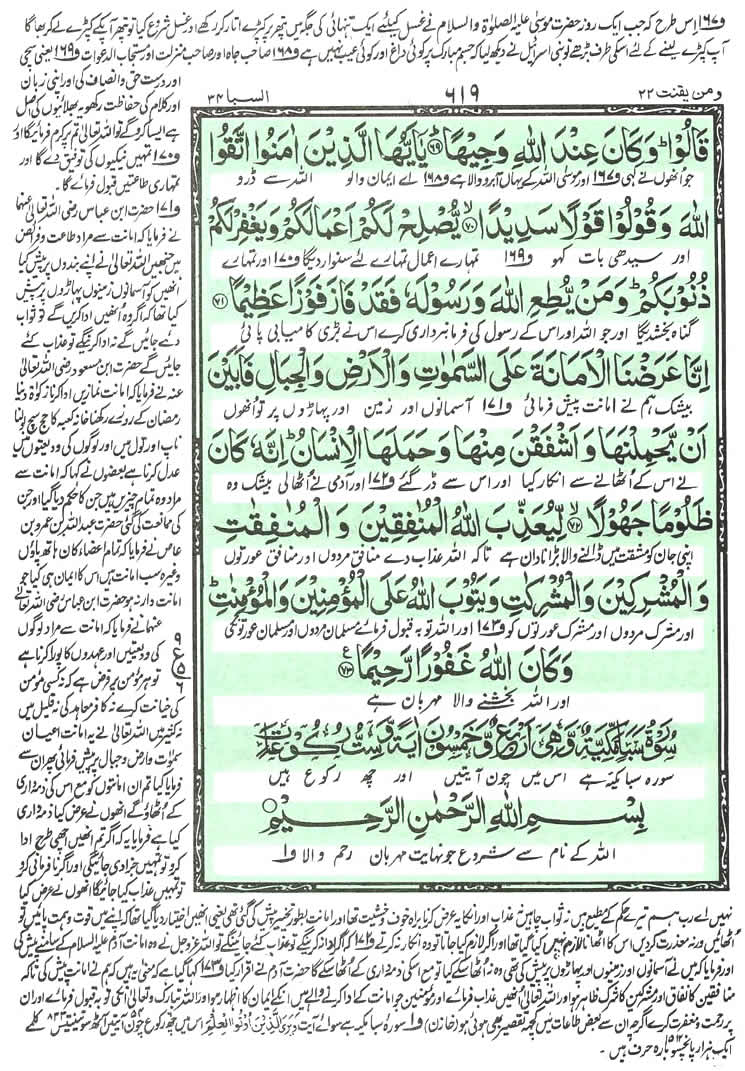 و۱۶۷ اِس طرح کہ جب ایک روز حضرت موسیٰ علیہ الصلوٰۃ والسلام نے غسل کیلئے ایک تنہائی کی جگہ میں پتھر پر کپڑے اتار کر رکھے اور غسل شروع کیا تو پتھر آپکے کپڑے لے کر بھاگا
آپ کپڑے لینے کے لئے اسکی طرف بڑھے تو بنی اسرائیل نے دیکھ لیا کہ جسم مبارک پر کوئی داغ اور کوئی عیب نہیں ہے و۱۶۸ صاحب جاہ اور صاحب منزلت اور مستجاب الدعوات و۱۶۹ یعنی سچی
ومن یقنت ۲۲
۶۱۹
السبا ۳۴
قَالُوْاؕ وَكَانَ عِنْدَ اللّٰهِ وَجِیْهًاؕ۶۹ یٰۤاَیُّهَا الَّذِیْنَ اٰمَنُوا اتَّقُوا
جو انھوں نے کہی و۱۶۷ اور موسیٰ اللہ کے یہاں آبرو والا ہے و۱۶۸ اے ایمان والو اللہ سے ڈرو
اللّٰهَ وَ قُوْلُوْا قَوْلًا سَدِیْدًاۙ۷۰ یُّصْلِحْ لَكُمْ اَعْمَالَكُمْ وَ یَغْفِرْ لَكُمْ
اور سیدھی بات کہو و۱۶۹ تمہارے اعمال تمہارے لئے سنوار دیگا و۱۷۰ اور تمہارے
ذُنُوْبَكُمْؕ وَ مَنْ یُّطِعِ اللّٰهَ وَ رَسُوْلَهٗ فَقَدْ فَازَ فَوْزًا عَظِیْمًا۷۱
گناہ بخشدیگا اور جو اللہ اور اس کے رسول کی فرمانبرداری کرے اس نے بڑی کامیابی پائی
اِنَّا عَرَضْنَا الْاَمَانَةَ عَلَى السَّمٰوٰتِ وَ الْاَرْضِ وَ الْجِبَالِ فَاَبَیْنَ
بیشک ہم نے امانت پیش فرمائی و۱۷۱ آسمانوں اور زمین اور پہاڑوں پر تو اُنھوں
اَنْ یَّحْمِلْنَهَا وَ اَشْفَقْنَ مِنْهَا وَ حَمَلَهَا الْاِنْسَانُؕ اِنَّهٗ كَانَ
نے اس کے اُٹھانے سے انکار کیا اور اس سے ڈر گئے و۱۷۲ اور آدمی نے اُٹھالی بیشک وہ
ظَلُوْمًا جَهُوْلًاۙ۷۲ لِّیُعَذِّبَ اللّٰهُ الْمُنٰفِقِیْنَ وَ الْمُنٰفِقٰتِ
اپنی جان کو مشقت میں ڈالنے والا بڑا نادان ہے تاکہ اللہ عذاب دے منافق مردوں اور منافق عورتوں
وَ الْمُشْرِكِیْنَ وَ الْمُشْرِكٰتِ وَ یَتُوْبَ اللّٰهُ عَلَى الْمُؤْمِنِیْنَ وَ الْمُؤْمِنٰتِؕ
اور مشرک مردوں اور مشرک عورتوں کو و۱۷۳ اور اللہ توبہ قبول فرمائے مسلمان مردوں اور مسلمان عورتوں کی
وَ كَانَ اللّٰهُ غَفُوْرًا رَّحِیْمًا۷۳
اور اللہ بخشنے والا مہربان ہے
سُوْرَةُ سَبَاٍ مَّكِّیَّةٌ وَّ هِیَ اَرْبَعٌ وَّ خَمْسُوْنَ اٰیَةً وَّ سِتُّ رُكُوْعَاتٍ
سورہ سبا مکیہ ہے اس میں چون آیتیں اور چھ رکوع ہیں
بِسْمِ اللّٰهِ الرَّحْمٰنِ الرَّحِیْمِ
اللہ کے نام سے شروع جو نہایت مہربان رحم والا و۱
اور درست حق و انصاف کی اور اپنی زبان
اور کلام کی حفاظت رکھو یہ بھلائیوں کی اصل
ہے ایسا کرو گے تو اللہ تعالیٰ تم پر کرم فرمائیگا اور
و۱۷۰ تمہیں نیکیوں کی توفیق دے گا اور
تمہاری طاعتیں قبول فرمائے گا۔
و۱۷۱ حضرت ابن عباس رضی اللہ تعالیٰ عنہما
نے فرمایا کہ امانت سے مراد طاعت و فرائض
ہیں جنھیں اللہ تعالیٰ نے اپنے بندوں پر پیش کیا
انھیں کو آسمانوں زمینوں پہاڑوں پر پیش
کیا تھا کہ اگر وہ انھیں ادا کریں گے تو ثواب
دئے جائیں گے نہ ادا کرینگے تو عذاب کئے
جائیں گے حضرت ابن مسعود رضی اللہ تعالیٰ
عنہ نے فرمایا کہ امانت نمازیں ادا کرنا زکوٰۃ دینا
رمضان کے روزے رکھنا خانہ کعبہ کا حج سچ بولنا
ناپ اور تول میں اور لوگوں کی ودیعتوں میں
عدل کرنا ہے بعضوں نے کہا کہ امانت سے
مراد وہ تمام چیزیں ہیں جن کا حکم دیا گیا اور جن
کی ممانعت کی گئی حضرت عبداللہ بن عمرو بن
عاص نے فرمایا کہ تمام اعضاء کان ہاتھ پاؤں
وغیرہ سب امانت ہیں اس کا ایمان ہی کیا جو
امانت دار نہ ہو حضرت ابن عباس رضی اللہ تعالیٰ
عنہما نے فرمایا کہ امانت سے مراد لوگوں
کی ودیعتیں اور عہدوں کا پورا کرنا ہے
تو ہر مؤمن پر فرض ہے کہ نہ کسی مؤمن
کی خیانت کرے نہ کافر معاہد کی نہ قلیل میں
نہ کثیر میں اللہ تعالیٰ نے یہ امانت اعیان
سمٰوٰت و ارض و جبال پر پیش فرمائی پھر ان سے
فرمایا کیا تم ان امانتوں کو مع اس کی ذمہ داری
کے اٹھاؤ گے انھوں نے عرض کیا ذمہ داری
کیا ہے فرمایا یہ کہ اگر تم انھیں اچھی طرح ادا
کرو تو تمہیں جزا دی جائیگی اور اگر نافرمانی کرو
تو تمہیں عذاب کیا جائے گا انھوں نے عرض کیا
۹
ع
۵
۶
نہیں اے رب ہم تیرے حکم کے مطیع ہیں نہ ثواب چاہیں نہ عذاب اور انکا یہ عرض کرنا براہ خوف و خشیت تھا اور امانت بطور تخییر پیش کی گئی تھی یعنی انھیں اختیار دیا گیا تھا کہ اپنے میں قوت و ہمت پائیں تو
اُٹھائیں ورنہ معذرت کر دیں اس کا اٹھانا لازم نہیں کیا گیا تھا اور اگر لازم کیا جاتا تو وہ انکار نہ کرتے و۱۷۲ کہ اگر ادا نہ کرینگے تو عذاب کئے جائینگے تو اللہ عزوجل نے وہ امانت آدم علیہ السلام کے سامنے پیش کی
اور فرمایا کہ میں نے آسمانوں اور زمینوں اور پہاڑوں پر پیش کی تھی وہ نہ اٹھا سکے کیا تو مع اسکی ذمہ داری کے اٹھا سکے گا حضرت آدم نے اقرار کیا و۱۷۳ کہا گیا ہے کہ معنی یہ ہیں کہ ہم نے امانت پیش کی تاکہ
منافقین کا نفاق اور مشرکین کا شرک ظاہر ہو اور اللہ تعالیٰ انھیں عذاب فرمائے اور مؤمنین جو امانت کے ادا کرنے والے ہیں انکے ایمان کا اظہار ہو اور اللہ تبارک وتعالیٰ انکی توبہ قبول فرمائے اور ان
پر رحمت و مغفرت کرے اگرچہ ان سے بعض طاعات میں کچھ تقصیر بھی ہوئی ہو (خازن) و۱ سورہ سبا مکیہ ہے سوائے آیت وَیَرَی الَّذِیْنَ اُوْتُوا الْعِلْمَ اس میں چھ رکوع چون آیتیں آٹھ سو تینتیس ۸۳۳ کلمے
ایک ہزار پانچسو بارہ حرف ہیں ۔